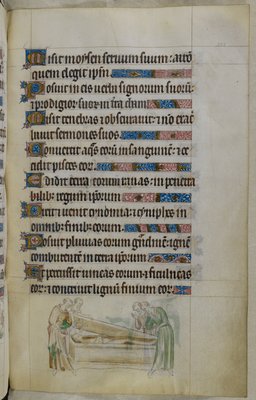 Misit moysen seruum suum: aaro
quem elegit ipm
Posuit in eis uerba signorum suorū:
⁊ prodigior suor in tra cham
Misit tenebras ⁊ obscurauit: ⁊ nō exac
buit sermones suos.
Conuertit aq̄s eoꝝ in sanguinē: ⁊ oc
cidit pisces eor.
Edidit terra eorum ranas: in penetra
libꝫ regum ipsorum
Dixit ⁊ uenit cynomia: ⁊ cyniphes in
omnibꝫ finibꝫ eorum.
Posuit pluuias eorum grādinē: ignē
comburentē in terra ipsorum.
Et percussit uineas eorum ⁊ ficulneas
eor: ⁊ contriuit lignū finium eor.